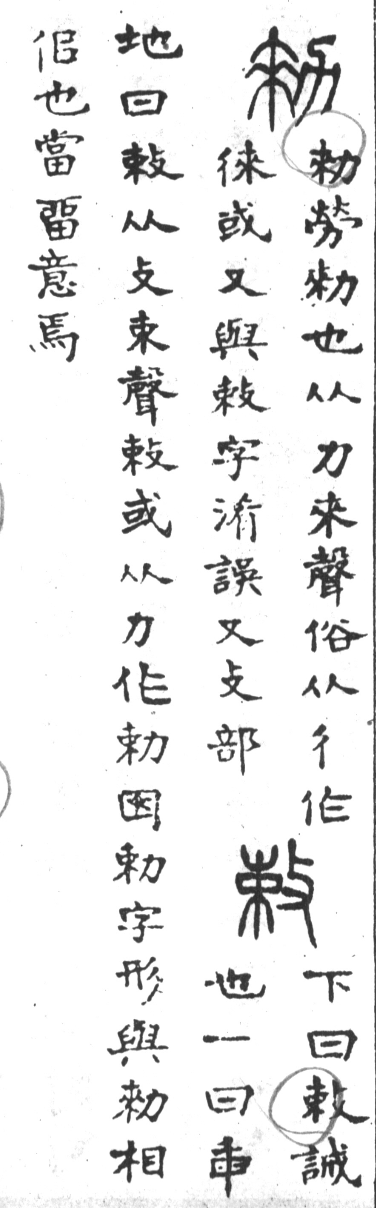 勑
勅勞勑也从力來聲俗从彳作
徠或又與敕字淆誤又攴部
敕
下曰敕誡
也一曰臿
地曰敕从攴束聲敕或从力作勅因勅字形與勑相
佀也當畱意焉